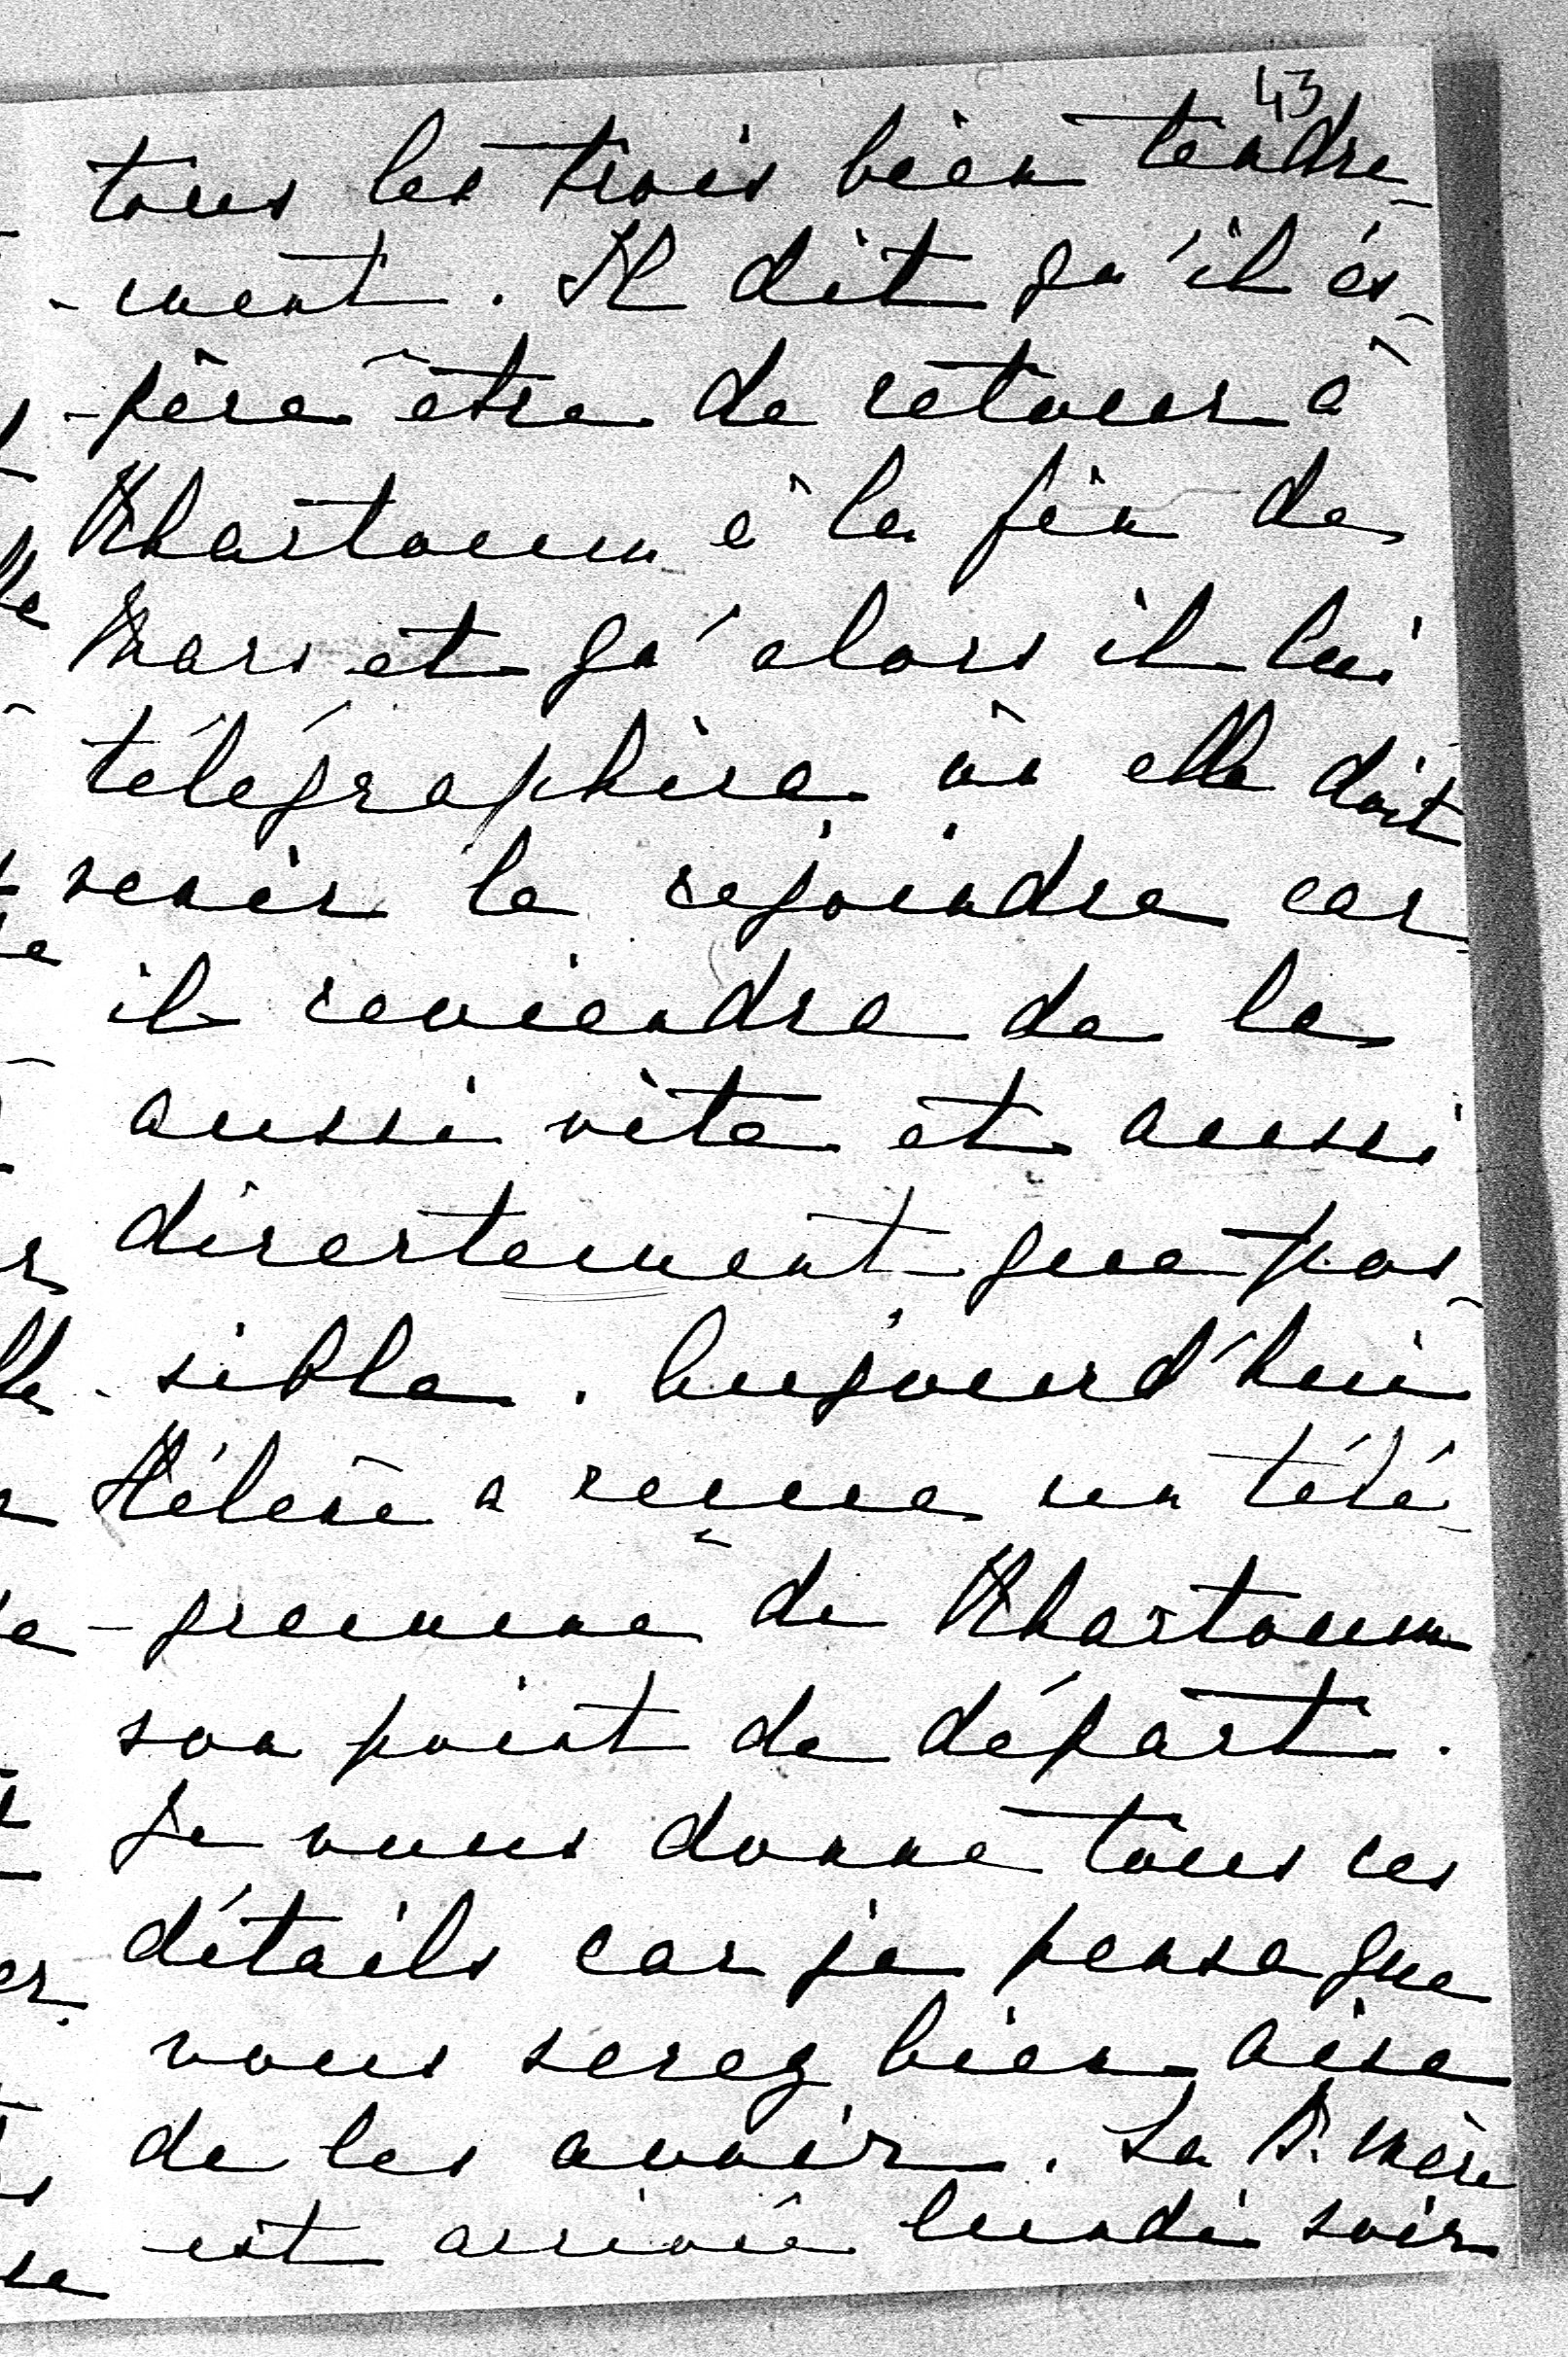 43
tous les trois bien tendre-
-ment. Il dit qu'il és-
-père être de retour à
Khartoum à la fin de
Mars et qu'alors il lui
télégraphira où elle doit
venir le rejoindre car
il reviendra de la
aussi vite et aussi
directement que pos-
sible. Aujourd'hui
Hélène a reçue un télé-
-gramme de Khartoum
son point de départ.
Je vous donne tous ces
détails car je pense que
vous serez bien aise
de les avoir. La mère
est arrivée lundi soir